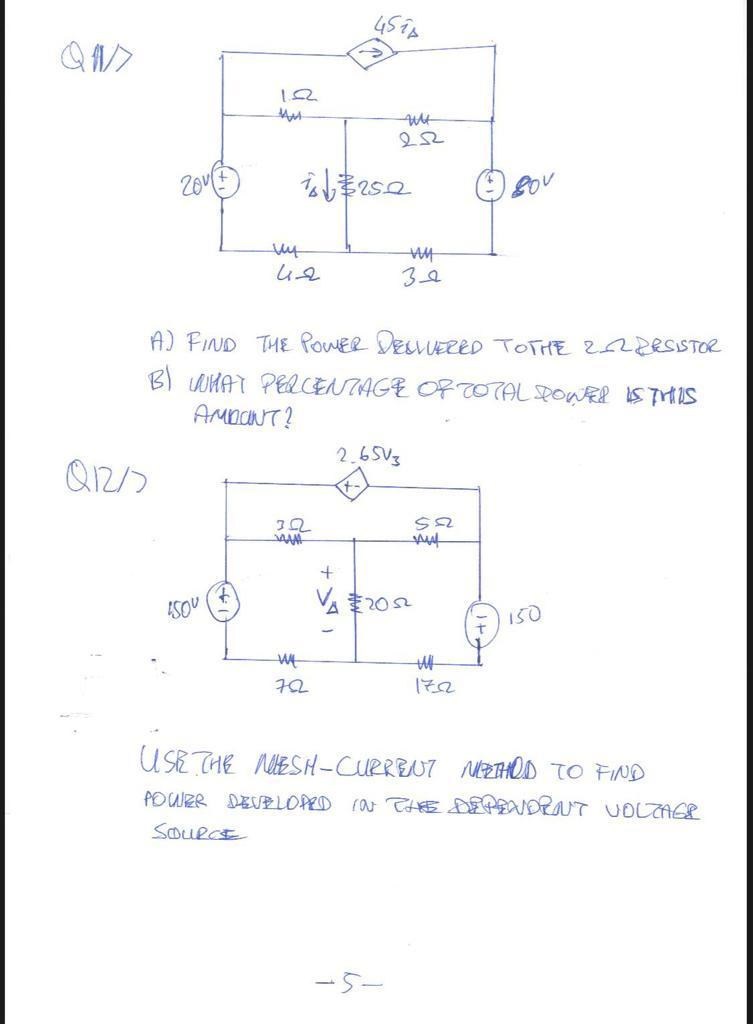 45iΔ
Q11/>
1Ω
2Ω
20V + - iΔ ↓ 25Ω + -
4Ω 3Ω
A) FIND THE POWER DELIVERED TO THE 2Ω RESISTOR
B) WHAT PERCENTAGE OF TOTAL POWER IS THIS
AMOUNT?
2.65V₃
Q12/>
+ -
3Ω 5Ω
+
150V + - VΔ 20Ω - + 150
-
7Ω 17Ω
USE THE MESH-CURRENT METHOD TO FIND
POWER DEVELOPED IN THE DEPENDENT VOLTAGE
SOURCE
-5-